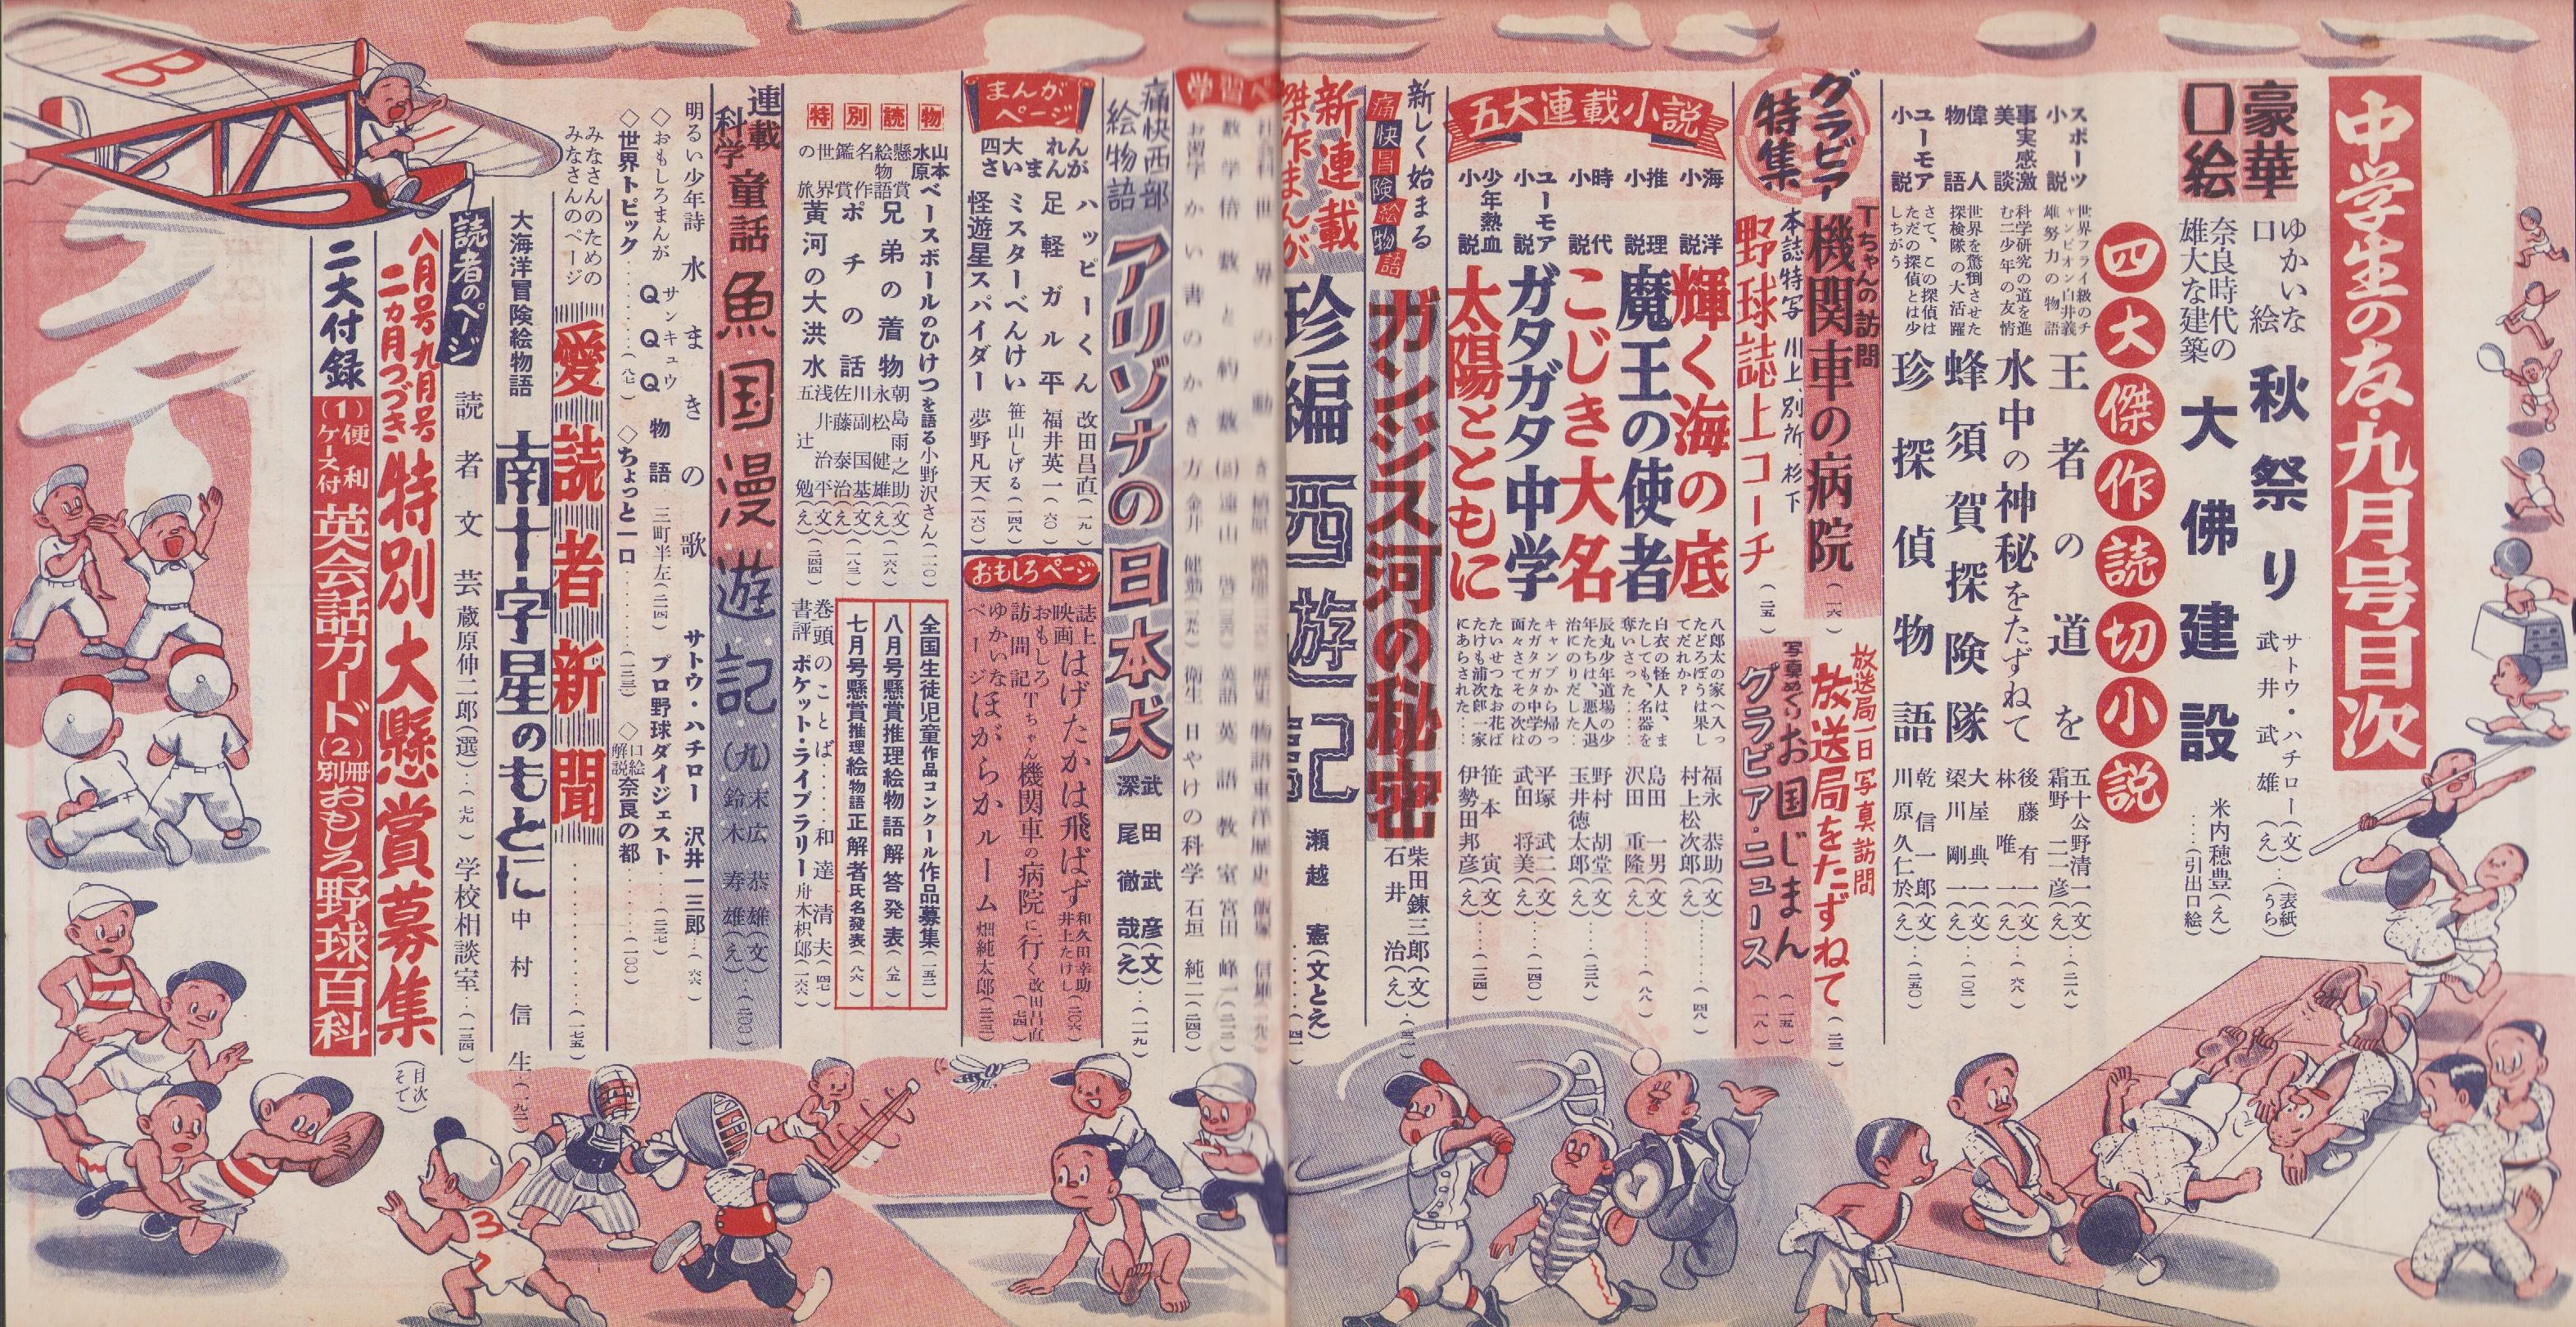 中学生の友・九月号目次
豪華
口絵
ゆかいな
口絵
秋祭り
サトウ・ハチロー(文)
武井武雄(え)
(表紙うら)
奈良時代の
雄大な建築
大佛建設
米内穂豊(え)
(引出口絵)
四大傑作読切小説
スポーツ小説
世界フライ級のチャンピオン白井義雄努力の物語
王者の道を
五十公野清一(文)
霜野二一彦(え)
(二一八)
事実感激美談
科学研究の道を進む二少年の友情
水中の神秘をたずねて
後藤有一(文)
林唯一(え)
(六八)
偉人物語
世界を驚倒させた探検隊の大活躍
蜂須賀探険隊
大屋典一(文)
梁川剛一(え)
(一〇二)
ユーモア小説
さて、この探偵はただの探偵とは少しちがう
珍探偵物語
乾信一郎(文)
川原久仁於(え)
(二五〇)
グラビア特集
Tちゃんの訪問
機関車の病院
(一六)
放送局一日写真訪問
放送局をたずねて
(二三)
本誌特写
川上 別所 杉下
野球誌上コーチ
(二五)
写真めぐり
お国じまん
(一五)
グラビア・ニュース
(一八)
五大連載小説
海洋小説
輝く海の底
八郎太の家へ入ったどろぼうは果してだれか?
福永恭助(文)
村上松次郎(え)
(四八)
推理小説
魔王の使者
白衣の怪人は、またしても、名器を奪いさった……
島田一男(文)
沢田重隆(え)
(八八)
時代小説
こじき大名
辰丸少年道場の少年たちは、悪人退治にのりだした…
野村胡堂(文)
玉井徳太郎(え)
(二三八)
ユーモア小説
ガタガタ中学
キャンプから帰ったガタガタ中学の面々さてその次は
平塚武二(文)
武田将美(え)
(一四〇)
少年熱血小説
太陽とともに
たいせつなお花ばたけも浦次郎一家にあらされた…
笹本寅(文)
伊勢田邦彦(え)
(一二四)
新しく始まる
痛快冒険絵物語
ガンジス河の秘密
柴田錬三郎(文)
石井治(え)
新連載
傑作まんが
珍編西遊記
瀬越憲(文とえ)
(四一)
学習ペ
世界の動き
数学
倍数と約数
遠山啓
お習字
かいい書のかき方
金井
歴史物語
東洋歴史
英語
英語教室
宮田峰一
衛生
日やけの科学
石垣純二(二四〇)
痛快西部
絵物語
アリゾナの日本犬
武田武彦(文)
深尾徹哉(え)
(一一九)
まんがページ
四大れんさいまんが
ハッピーくん
改田昌直(一九)
足軽ガル平
福井英一(六〇)
ミスターべんけい
笹山しげる(一四八)
怪遊星スパイダー
夢野凡天(一六〇)
おもしろページ
誌上映画
はげたかは飛ばず
和久田幸助
井上たけし
(二〇六)
おもしろ訪問記
Tちゃん機関車の病院に行く
改田昌直(七四)
ゆかいなページ
ほがらかルーム
畑純太郎(二三三)
特別読物
山本
水原
ベースボールのひけつを語る
小野沢さん(一一〇)
懸賞絵物語
兄弟の着物
朝島雨之助(文)
永松健雄(え)
(一六八)
名作鑑賞
ポチの話
川副国基(文)
佐藤泰治(え)
(一八三)
世界の旅
黄河の大洪水
浅井治平(文)
五辻勉(え)
(二四四)
全国生徒児童作品コンクール作品募集(一五二)
八月号懸賞推理絵物語解答発表(八五)
七月号懸賞推理絵物語正解者氏名発表(八六)
巻頭のことば……和達清夫(四七)
書評 ポケット・ライブラリー 舟木枳郎(一六六)
連載
科学童話
魚国漫遊記(九)
末広恭雄(文)
鈴木寿雄(え)
(二〇〇)
明るい少年詩
水まきの歌
サトウ・ハチロー
沢井一三郎
(六六)
◇おもしろまんが
サンキュウ
QQQ物語
三町半左(二一四)
プロ野球ダイジェスト……(二三七)
◇世界トピック……(八七)
◇ちょっと一口……(二三三)
◇口絵解説
奈良の都……(一〇〇)
みなさんのための
みなさんのページ
愛読者新聞
(一七五)
大海洋冒険絵物語
南十字星のもとに
中村信生(一九二)
読者のページ
読者文芸
蔵原伸二郎(選)(七九)
学校相談室…(一三四)
八月号九月号
二カ月つづき
特別大懸賞募集
二大付録
(1)便利ケース付
英会話カード
(2)別冊
おもしろ野球百科
(目次そで)
B
3